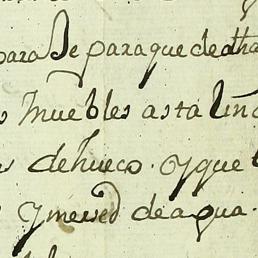 para Se para que de dha
muebles asta lin
de hueco. Y que
y merced de agua.